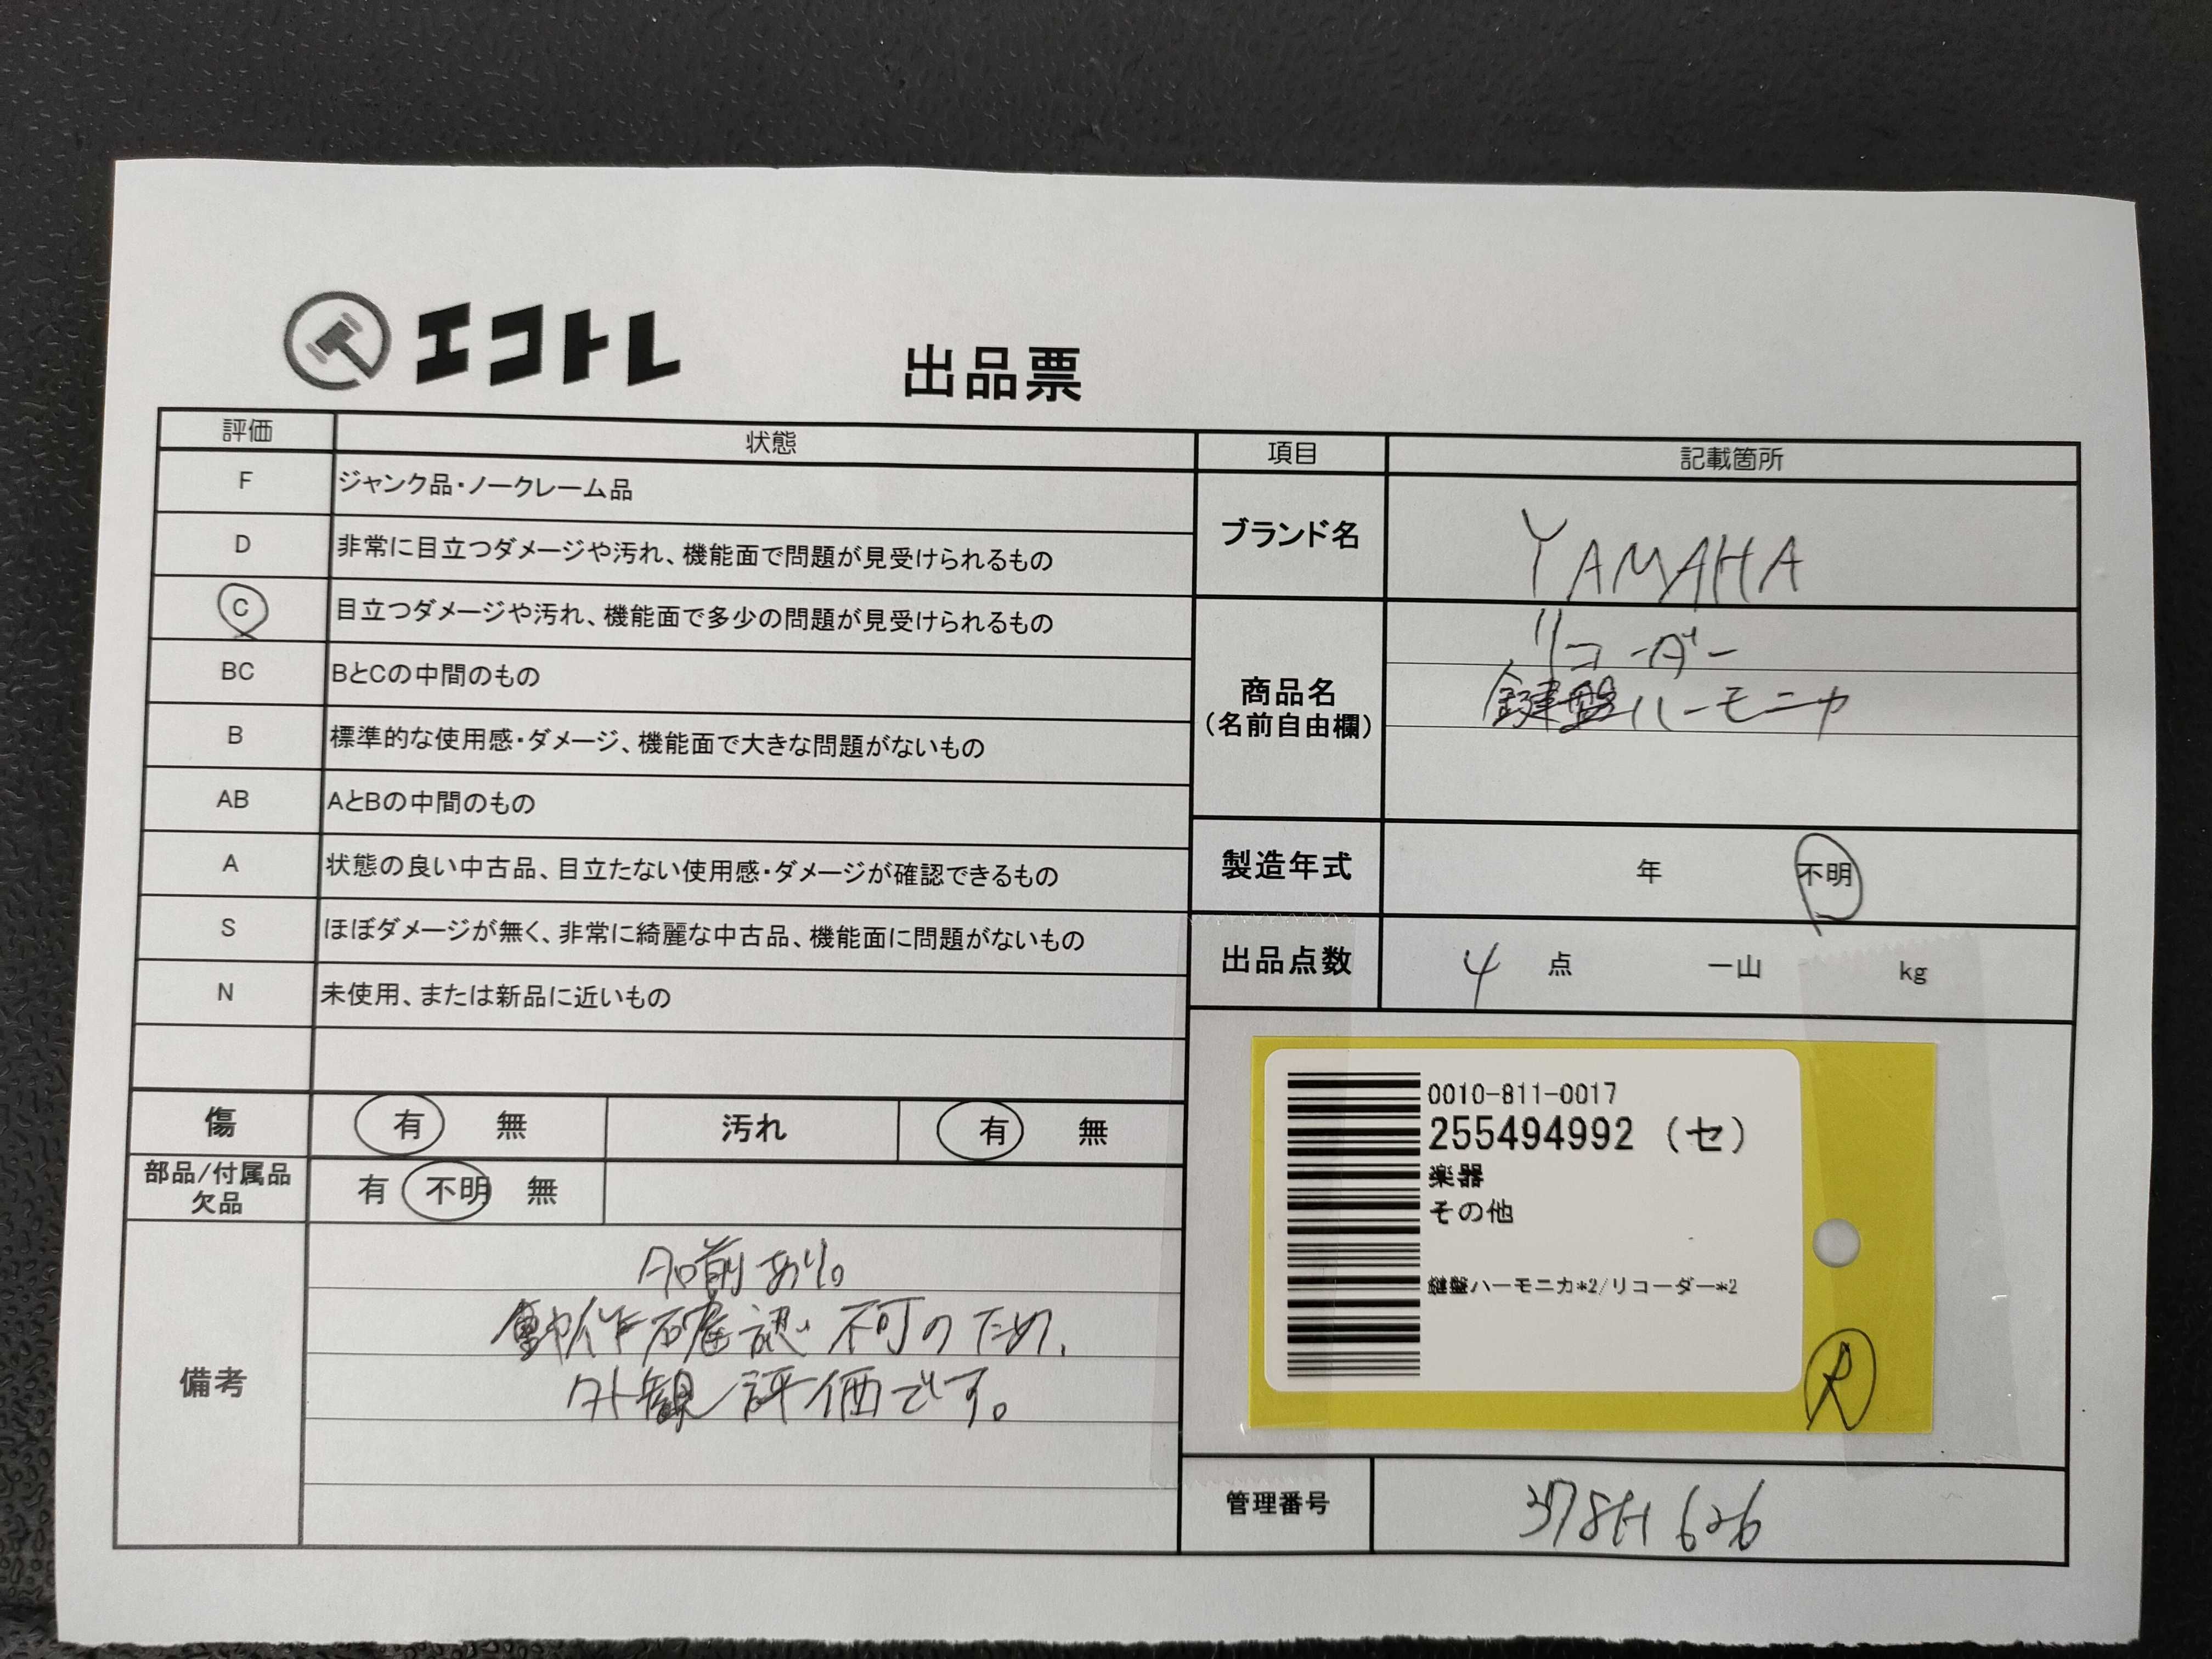 エコトレ
出品票
評価 状態
F ジャンク品・ノークレーム品
D 非常に目立つダメージや汚れ、機能面で問題が見受けられるもの
C 目立つダメージや汚れ、機能面で多少の問題が見受けられるもの
BC BとCの中間のもの
B 標準的な使用感・ダメージ、機能面で大きな問題がないもの
AB AとBの中間のもの
A 状態の良い中古品、目立たない使用感・ダメージが確認できるもの
S ほぼダメージが無く、非常に綺麗な中古品、機能面に問題がないもの
N 未使用、または新品に近いもの
傷 有 無 汚れ 有 無
部品/付属品
欠品 有 不明 無
備考
名前あり。
動作確認不可のため、
外観評価です。
項目 記載箇所
ブランド名 YAMAHA
商品名
(名前自由欄)
リコーダー
鍵盤ハーモニカ
製造年式 年 不明
出品点数 4 点 一山 kg
0010-811-0017
255494992 (セ)
楽器
その他
鍵盤ハーモニカ*2/リコーダー*2
R
管理番号 378H 626